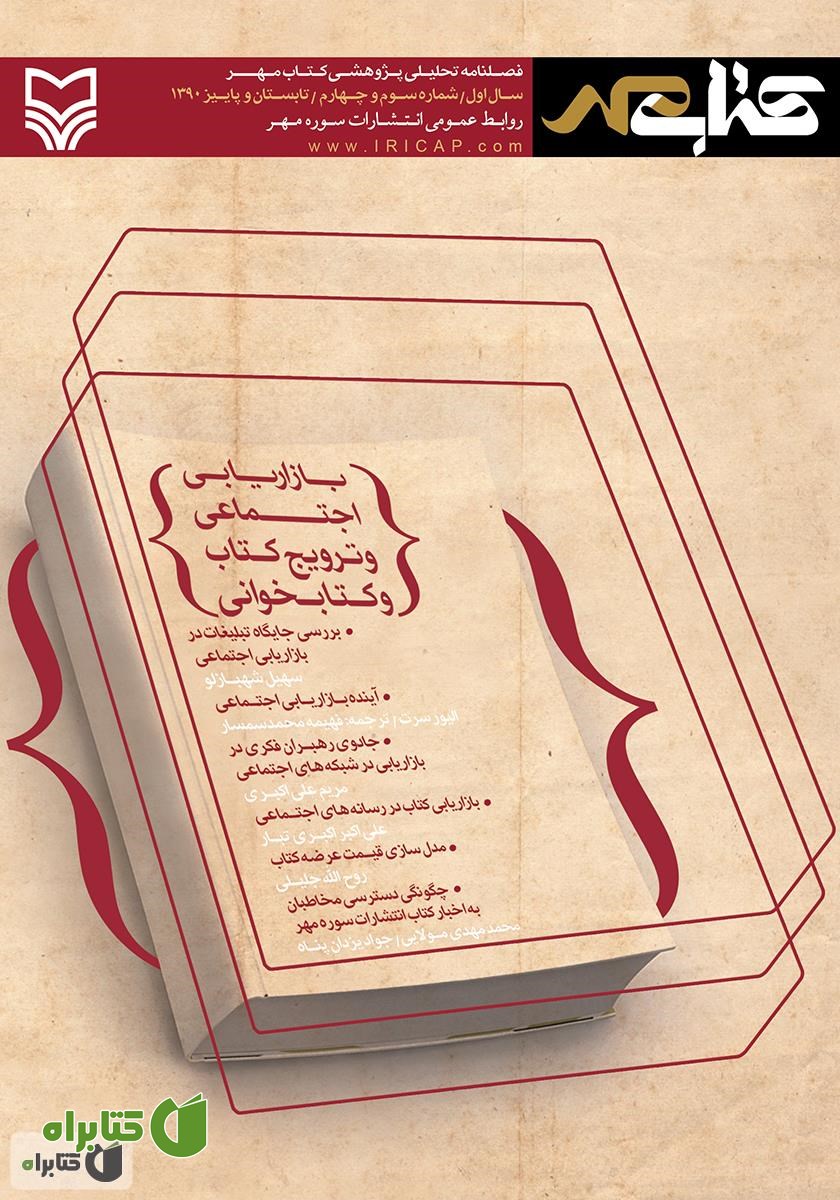 کتاب مهر
فصلنامه تحلیلی پژوهشی کتاب مهر
سال اول/ شماره سوم و چهارم / تابستان و پاییز ۱۳۹۰
روابط عمومی انتشارات سوره مهر
www.IRICAP.com
بازاریابی
اجتماعی
و ترویج کتاب
و کتابخوانی
• بررسی جایگاه تبلیغات در
بازاریابی اجتماعی
سهیل شهبازلو
• آینده بازاریابی اجتماعی
الیور سرت / ترجمه: فهیمه محمدسمسار
• جادوی رهبران فکری در
بازاریابی در شبکه‌های اجتماعی
مریم علی اکبری
• بازاریابی کتاب در رسانه‌های اجتماعی
علی اکبر اکبری تبار
• مدل سازی قیمت عرضه کتاب
روح الله جلیلی
• چگونگی دسترسی مخاطبان
به اخبار کتاب انتشارات سوره مهر
محمد مهدی مولایی / جواد یزدان پناه
کتابراه
کتابراه